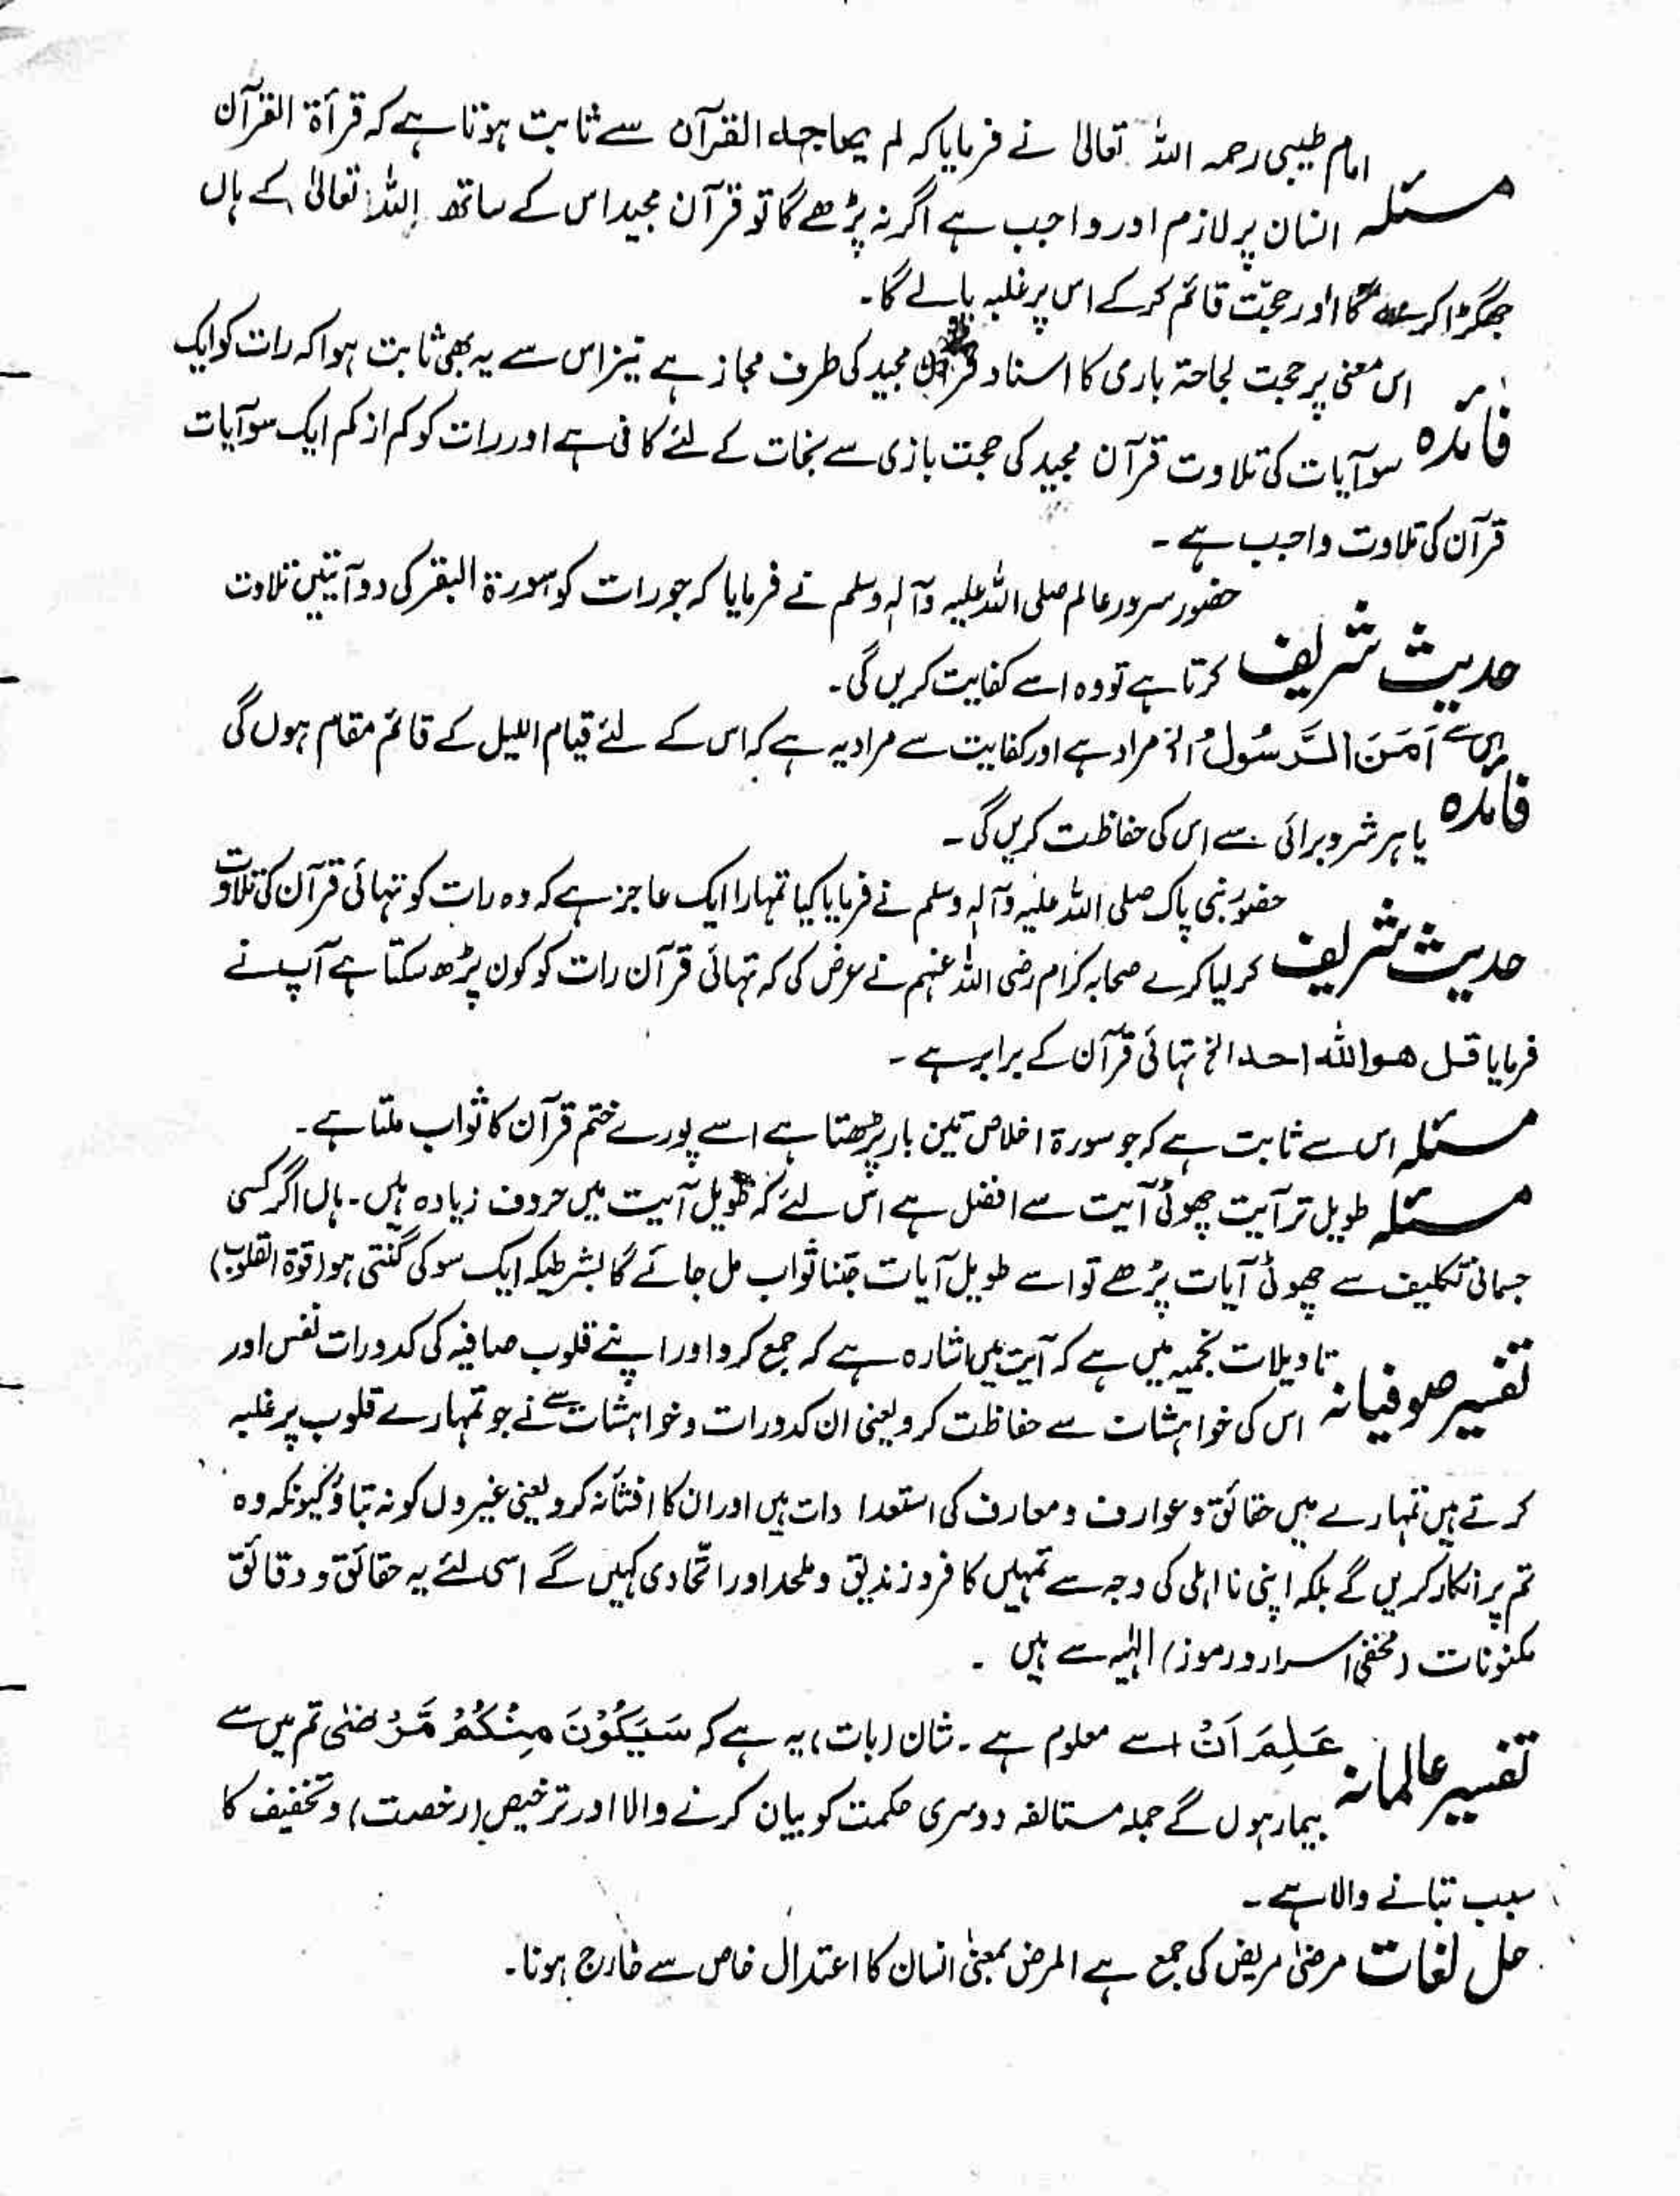 امام طیبی رحمہ اللہ تعالیٰ نے فرمایا کہ لم یحاجہ القرآن سے ثابت ہوتا ہے کہ قرأۃ القرآن
مسئلہ انسان پر لازم اور واجب ہے اگر نہ پڑھے گا تو قرآن مجید اس کے ساتھ اللہ تعالیٰ کے ہاں
جھگڑا کرے گا اور حجّت قائم کرکے اس پر غلبہ پالے گا۔
اس معنی پر حجت لجاحتہ باری کا اسناد قرآن مجید کی طرف مجاز ہے نیز اس سے یہ بھی ثابت ہوا کہ رات کو ایک
فائدہ سو آیات کی تلاوت قرآن مجید کی حجت بازی سے نجات کے لئے کافی ہے اور رات کو کم از کم ایک سو آیات
قرآن کی تلاوت واجب ہے۔
حضور سرور عالم صلی اللہ علیہ وآلہ وسلم نے فرمایا کہ جو رات کو سورۃ البقر کی دو آیتیں تلاوت
حدیث شریف کرتا ہے تو وہ اسے کفایت کریں گی۔
اس سے آمَنَ الرَّسُولُ الخ مراد ہے اور کفایت سے مراد یہ ہے کہ اس کے لئے قیام اللیل کے قائم مقام ہوں گی
فائدہ یا ہر شر و برائی سے اس کی حفاظت کریں گی۔
حضور نبی پاک صلی اللہ علیہ وآلہ وسلم نے فرمایا کیا تمہارا ایک عاجز ہے کہ وہ رات کو تہائی قرآن کی تلاوت
حدیث شریف کرلیا کرے صحابہ کرام رضی اللہ عنہم نے عرض کی کہ تہائی قرآن رات کو کون پڑھ سکتا ہے آپ نے
فرمایا قل ھو اللہ احد الخ تہائی قرآن کے برابر ہے۔
مسئلہ اس سے ثابت ہے کہ جو سورۃ اخلاص تین بار پڑھتا ہے اسے پورے ختم قرآن کا ثواب ملتا ہے۔
مسئلہ طویل تر آیت چھوٹی آیت سے افضل ہے اس لئے کہ طویل آیت میں حروف زیادہ ہیں۔ ہاں اگر کسی
جسمانی تکلیف سے چھوٹی آیات پڑھے تو اسے طویل آیات جتنا ثواب مل جائے گا بشرطیکہ ایک سو کی گنتی ہو (قوۃ القلوب)
تاویلات نجمیہ میں ہے کہ آیت میں اشارہ ہے کہ جمع کرو اور اپنے قلوب صافیہ کی کدورات نفس اور
تفسیر صوفیانہ اس کی خواہشات سے حفاظت کرو یعنی ان کدورات و خواہشات سے نے جو تمہارے قلوب پر غلبہ
کرتے ہیں تمہارے میں حقائق و عوارف و معارف کی استعدادات ہیں اور ان کا افشأ نہ کرو یعنی غیروں کو نہ بتاؤ کیونکہ وہ
تم پر انکار کریں گے بلکہ اپنی نااہلی کی وجہ سے تمہیں کافر و زندیق و ملحد اور اتّحادی کہیں گے اسی لئے یہ حقائق و دقائق
مکنونات (مخفی اسرار و رموز) الٰہیہ سے ہیں۔
عَلِمَ اَنْ اسے معلوم ہے۔ شان (بات) یہ ہے کہ سَیَکُوْنَ مِنْکُمْ مَّرْضٰی تم میں سے
تفسیر عالمانہ بیمار ہوں گے جملہ مستالفہ دوسری حکمت کو بیان کرنے والا اور ترخیص (رخصت) و تخفیف کا
سبب بتانے والا ہے۔
حل لغات مرضیٰ مریض کی جمع ہے المرض بمعنیٰ انسان کا اعتدال خاص سے خارج ہونا۔